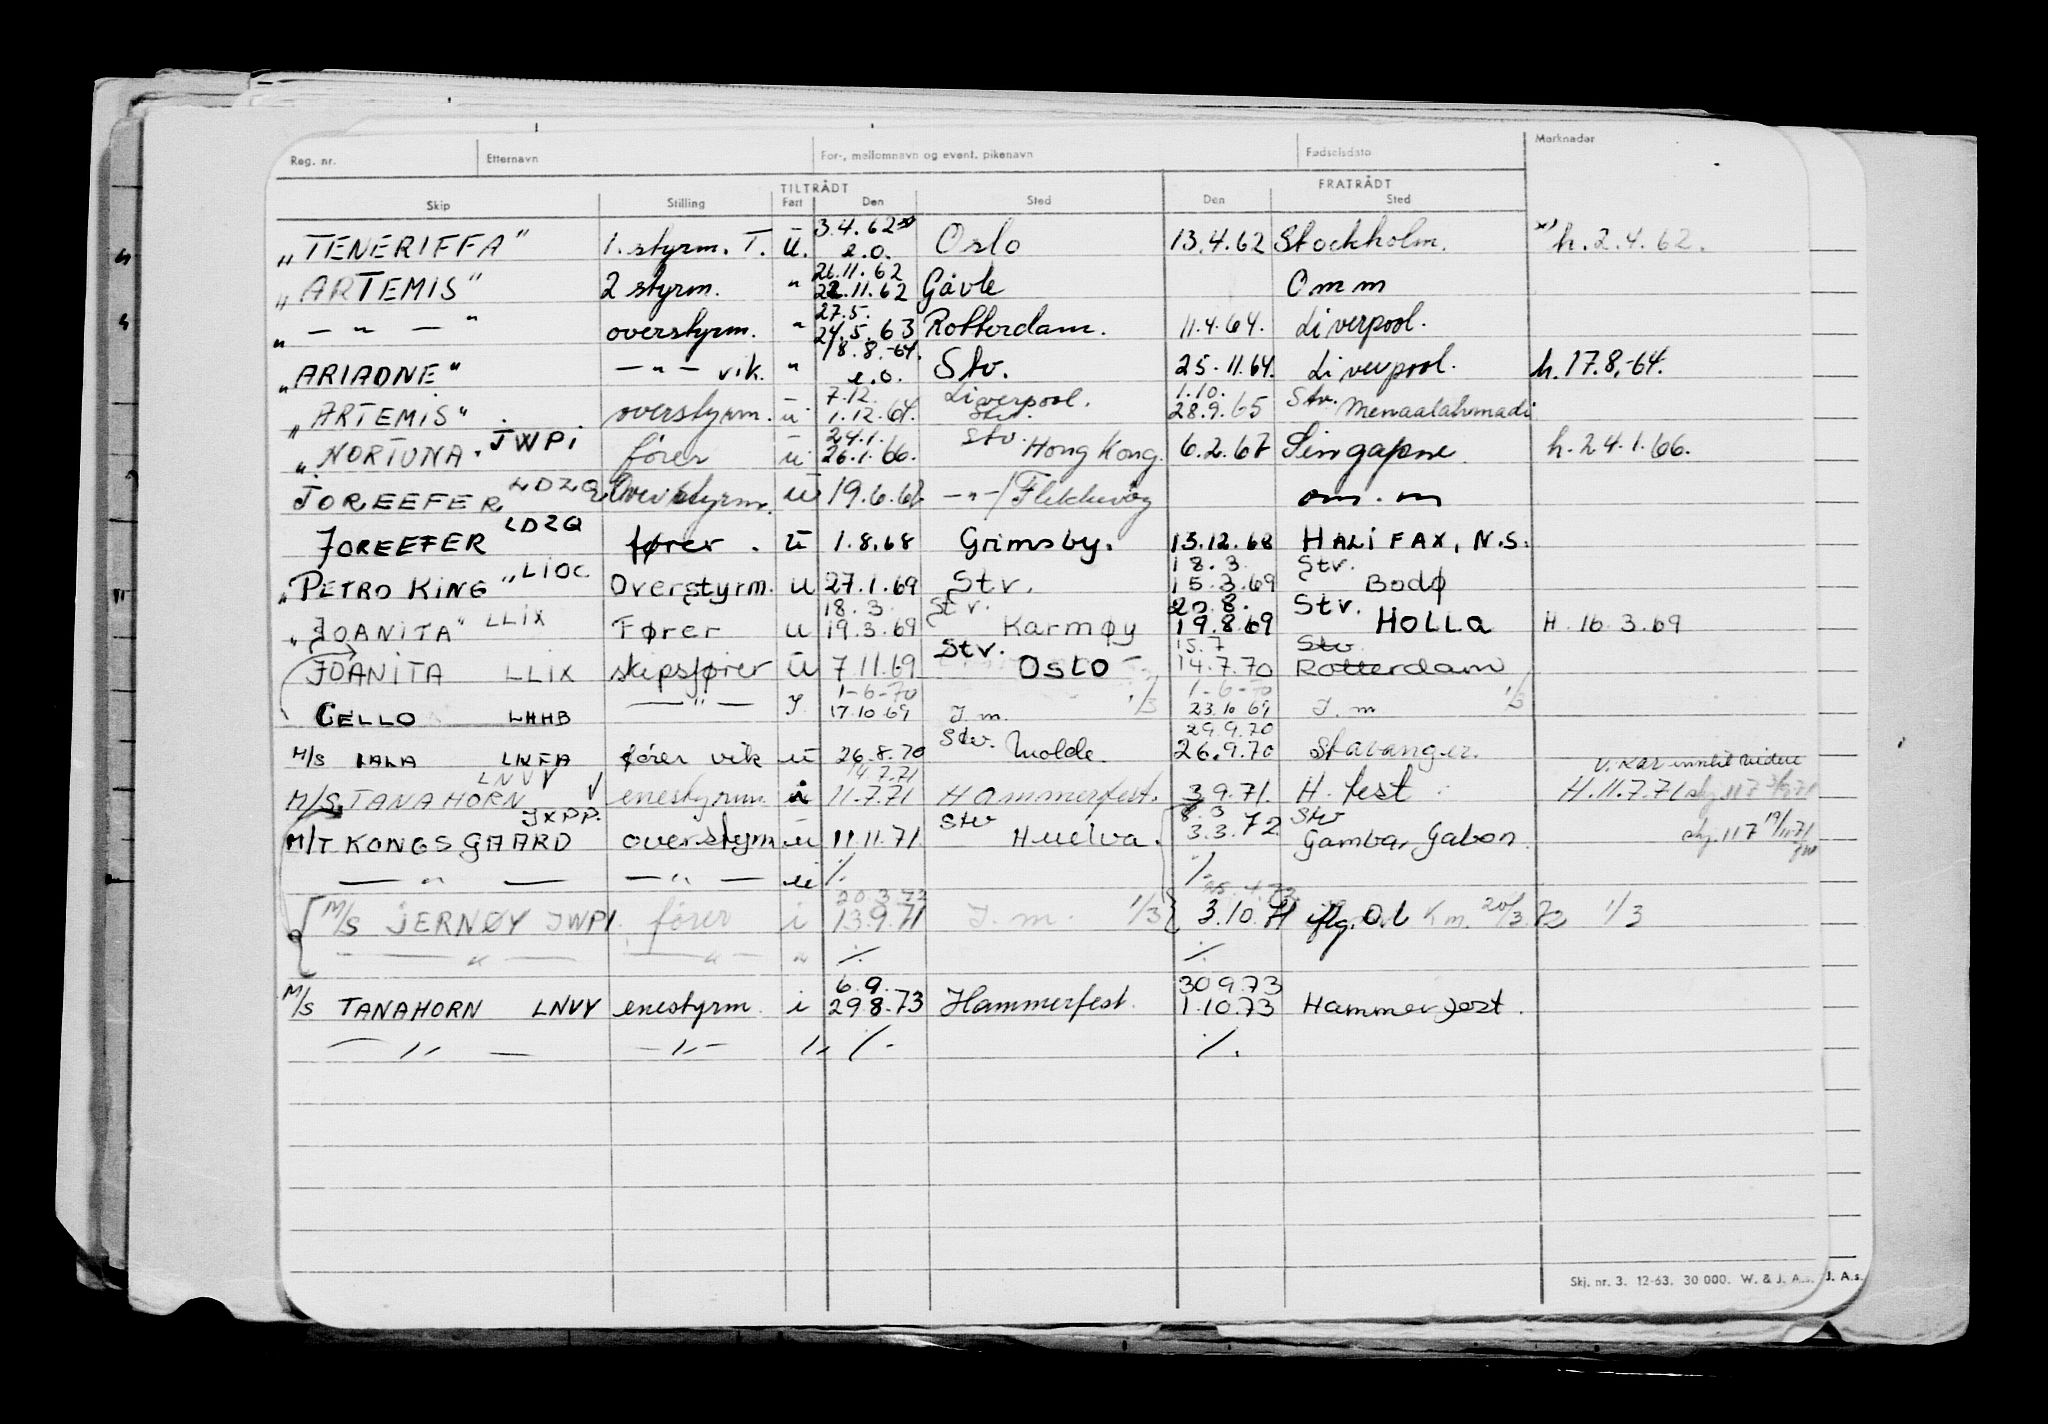 Reg. nr. Etternavn For-, mellomnavn og event. pikenavn Fødselsdato Merknader
TILTRÅDT FRATRÅDT
Skip Stilling Fart Den Sted Den Sted
3.4.62 x)
„TENERIFFA" 1. styrm. T. u. e.o. Oslo 13.4.62 Stockholm. x) h. 2.4.62.
26.11.62
„ARTEMIS" 2 styrm. " 22.11.62 Gävle Omm
27.5.
„ — " — " overstyrm. " 24.5.63 Rotterdam. 11.4.64. Liverpool.
18.8.-64.
„ARIADNE" — " — vik. " e.o. Stv. 25-11.64. Liverpool. h. 17.8.-64.
7.12. Liverpool. 1.10. Stv.
„ARTEMIS" overstyrm. u 1.12.64. Stv. 28.9.65 Menaalahmadi
24.1. Stv.
„NORTUNA" JWPi fører u 26.1.66. Hong Kong. 6.2.67 Singapore. h. 24.1.66.
JOREEFER LDZQ Overstyrm. u 19.6.67 — " — / Flekkevåg om. m
JOREEFER LDZQ fører. u 1.8.68 Grimsby. 13.12.68 HALIFAX, N.S.
18.3. Stv.
„PETRO KING" LIOC Overstyrm. u 27.1.69 Stv. 15.3.69 Bodø
18.3. Stv. 20.8. Stv.
„JOANITA" LLIX Fører u 19.3.69 Karmøy 19.8.69 HOLLA H. 16.3.69
Stv. 15.7 Stv
JOANITA LLIX skipsfører u 7.11.69 OSLO 14.7.70 Rotterdam
1-6-70 1/3 1-6-70 1/3
CELLO LHHB — " — J. 17.10.69 J. m. 23.10.69 J. m
Stv. 29.9.70
M/S LALA LNFA fører vik u 26.8.70 Molde. 26.9.70 Stavanger.
LNVY 14.7.71 v. kar inntil videre
M/S. TANAHORN enestyrm. i 11.7.71 Hammerfest. 3.9.71. H. fest H. 11.7.71
JXPP. Stv 8.3 Stv
M/T KONGSGAARD overstyrm u 11.11.71 Huelva. 3.3.72 Gamba, Gabon. skj. 117 19/11-71
— " — — " — u ./. ./.
20.3.72
M/S JERNØY JWPI fører i 13.9.71 J. m. 1/3 3.10.71 iflg. O.l Km. 20/3.72 1/3
— " — — " — " ./. ./.
6.9. 30.9.73
M/S TANAHORN LNVY enestyrm. i 29.8.73 Hammerfest. 1.10.73 Hammerfest.
— " — — " — " ./. ./.
Skj. nr. 3. 12-63. 30 000. W. & J. A.s. J. A.s.